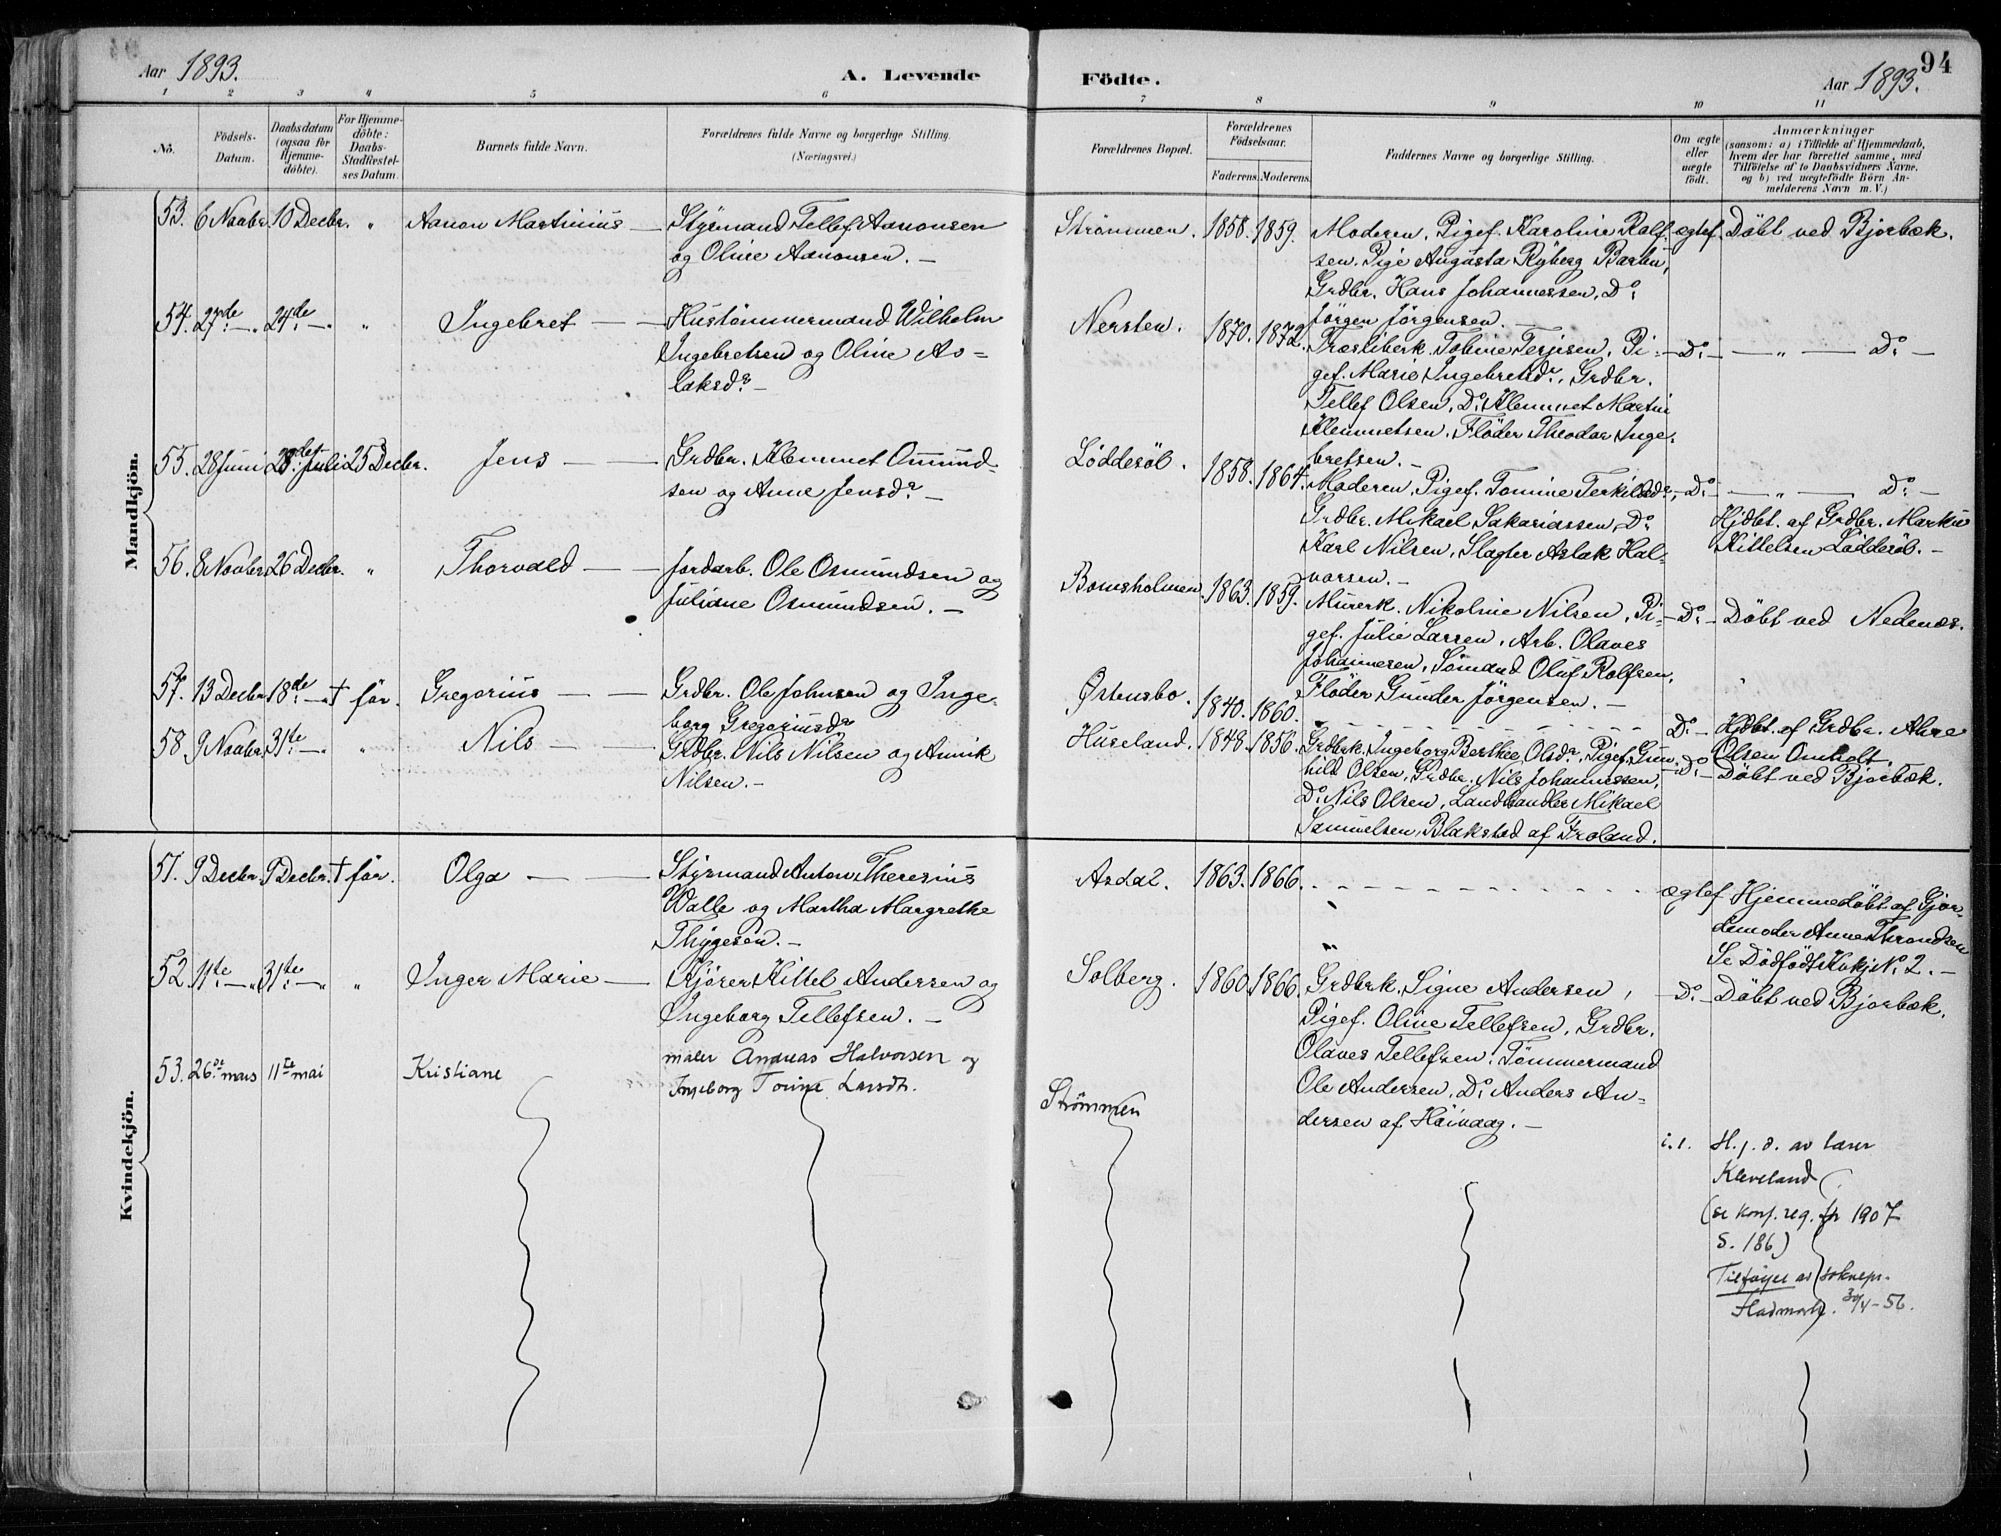 94
Aar 1893.
A. Levende
Födte.
Aar 1893.
1 2 3 4 5 6 7 8 9 10 11
No.
Födsels-
Datum.
Daabsdatum
(ogsaa for
Hjemme-
döbte).
For Hjemme-
döbte:
Daabs-
Stadfæstel-
ses Datum.
Barnets fulde Navn.
Forældrenes fulde Navne og borgerlige Stilling.
(Næringsvei.)
Forældrenes Bopæl.
Forældrenes
Födselsaar.
Faderens. Moderens.
Faddernes Navne og borgerlige Stilling.
Om ægte
eller
uægte
födt.
Anmærkninger
(saasom: a) i Tilfælde af Hjemmedaab,
hvem der har forrettet samme, med
Tilföielse af to Daabsvidners Navne,
og b) ved uægtefödte Börn An-
melderens Navn m. V.)
Mandkjön.
53. 6 Novbr. 10 Decbr. " Aanon Martinius — Styrmand Tellef Aanonsen
og Oline Aanonsen. —
Strømmen. 1858. 1859. Moderen, Pigef. Karoline Rolf-
sen, Pige Augusta Ryberg Barbu,
Grdbr. Hans Johannessen, Do.
Jörgen Jörgensen. —
ægtef. Döbt ved Bjorbæk.
54. 27de — " 24de — " " Ingebret — — Kustømmermand Wilhelm
Ingebretsen og Oline As-
laksdr. —
Nersten. 1870. 1872. Tobine Terjesen, Pi-
gef. Marie Ingebretsdr., Grdbr.
Tellef Olsen, Do. Klemmet Martin
Klemmetsen, Fløder Theodor Inge-
bretsen. —
— Do. — — " — Do. —
55. 28 Juni 28de Juli 25 Decbr. Jens — — Grdbr. Klemmet Osmund-
sen og Anne Jensdr. —
Löddesöl. 1858. 1864. Moderen, Pigef. Tomine Terkildsdr.,
Grdbr. Mikael Sakariassen, Do.
Karl Nilsen, Slagter Aslak Hal-
vorsen. —
— Do. — — " — Do. —
Hjdbt. af Grdbr. Markus
Kittelsen Löddesöl. —
56. 8 Novbr. 26 Decbr. " Thorvald — — Jordarb. Ole Osmundsen og
Juliane Osmundsen. —
Bomsholmen. 1863. 1859. Murerk. Nikoline Nilsen, Pi-
gef. Julie Larsen, Arb. Olaves
Johannesen, Sömand Oluf Rolfsen,
Flöder Gunder Jörgensen. —
— Do. — Döbt ved Nedenæs.
57. 13 Decbr. 18de — " † för. Gregorius — — Grdbr. Ole Johnsen og Inge-
borg Gregoriusdr.
Østensbo. 1840. 1860.
Do. — Hjdbt. af Grdbr.
Olsen Omholt.
58. 9 Novbr. 31te — " " Nils — — Grdbr. Nils Nilsen og Annik
Nilsen. —
Huseland. 1848. 1856. Grdbrk. Ingeborg Berthe Olsdr., Pigef. Gun-
hild Olsen, Grdbr. Nils Johannessen,
Do. Nils Olsen, Landhandler Mikael
Samuelsen, Blakstad af Froland.
— Do. — Döbt ved Bjorbæk.
Kvindekjön.
51. 9 Decbr. 9 Decbr. † för. Olga — — Styrmand Anton Theresius
Walle og Martha Margrethe
Thygesen. —
Asdal. 1863. 1866.
ægtef Hjemmedöbt af Gjor-
demoder Anne Throndsen
Se Dödfödt Kvkj No. 2. —
52. 11te — " 31te — " " Inger Marie — Kjörer Kittel Andersen og
Ingeborg Tellefsen. —
Solberg. 1860. 1866. Grdbrk. Signe Andersen,
Pigef. Oline Tellefsen, Grdbr.
Olaves Tellefsen, Tömmermand
Ole Andersen, Do. Anders An-
dersen af Höivaag. —
— Do. — Döbt ved Bjorbæk.
53. 26de mars 11te mai Kristiane maler Andreas Halvorsen og
Ingeborg Torine Larsdt.
Strömmen
H. j. d. av lærer
Kleveland
(se konf. reg. for 1907
S. 186)
Tilføyet av soknepr.
30/4-56.